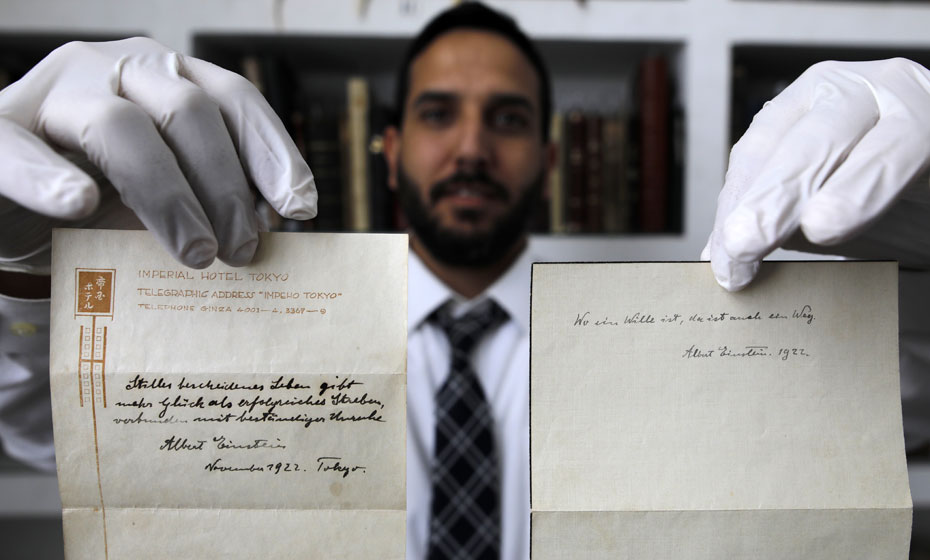 IMPERIAL HOTEL TOKYO
帝国
ホテル
TELEGRAPHIC ADDRESS "IMPEHO TOKYO"
TELEPHONE GINZA 4001-4, 3267-9
Stilles bescheidenes Leben gibt
mehr Glück als erfolgreiches Streben,
verbunden mit beständiger Unruhe
Albert Einstein
November 1922. Tokyo.
Wo ein Wille ist, da ist auch ein Weg.
Albert Einstein. 1922.